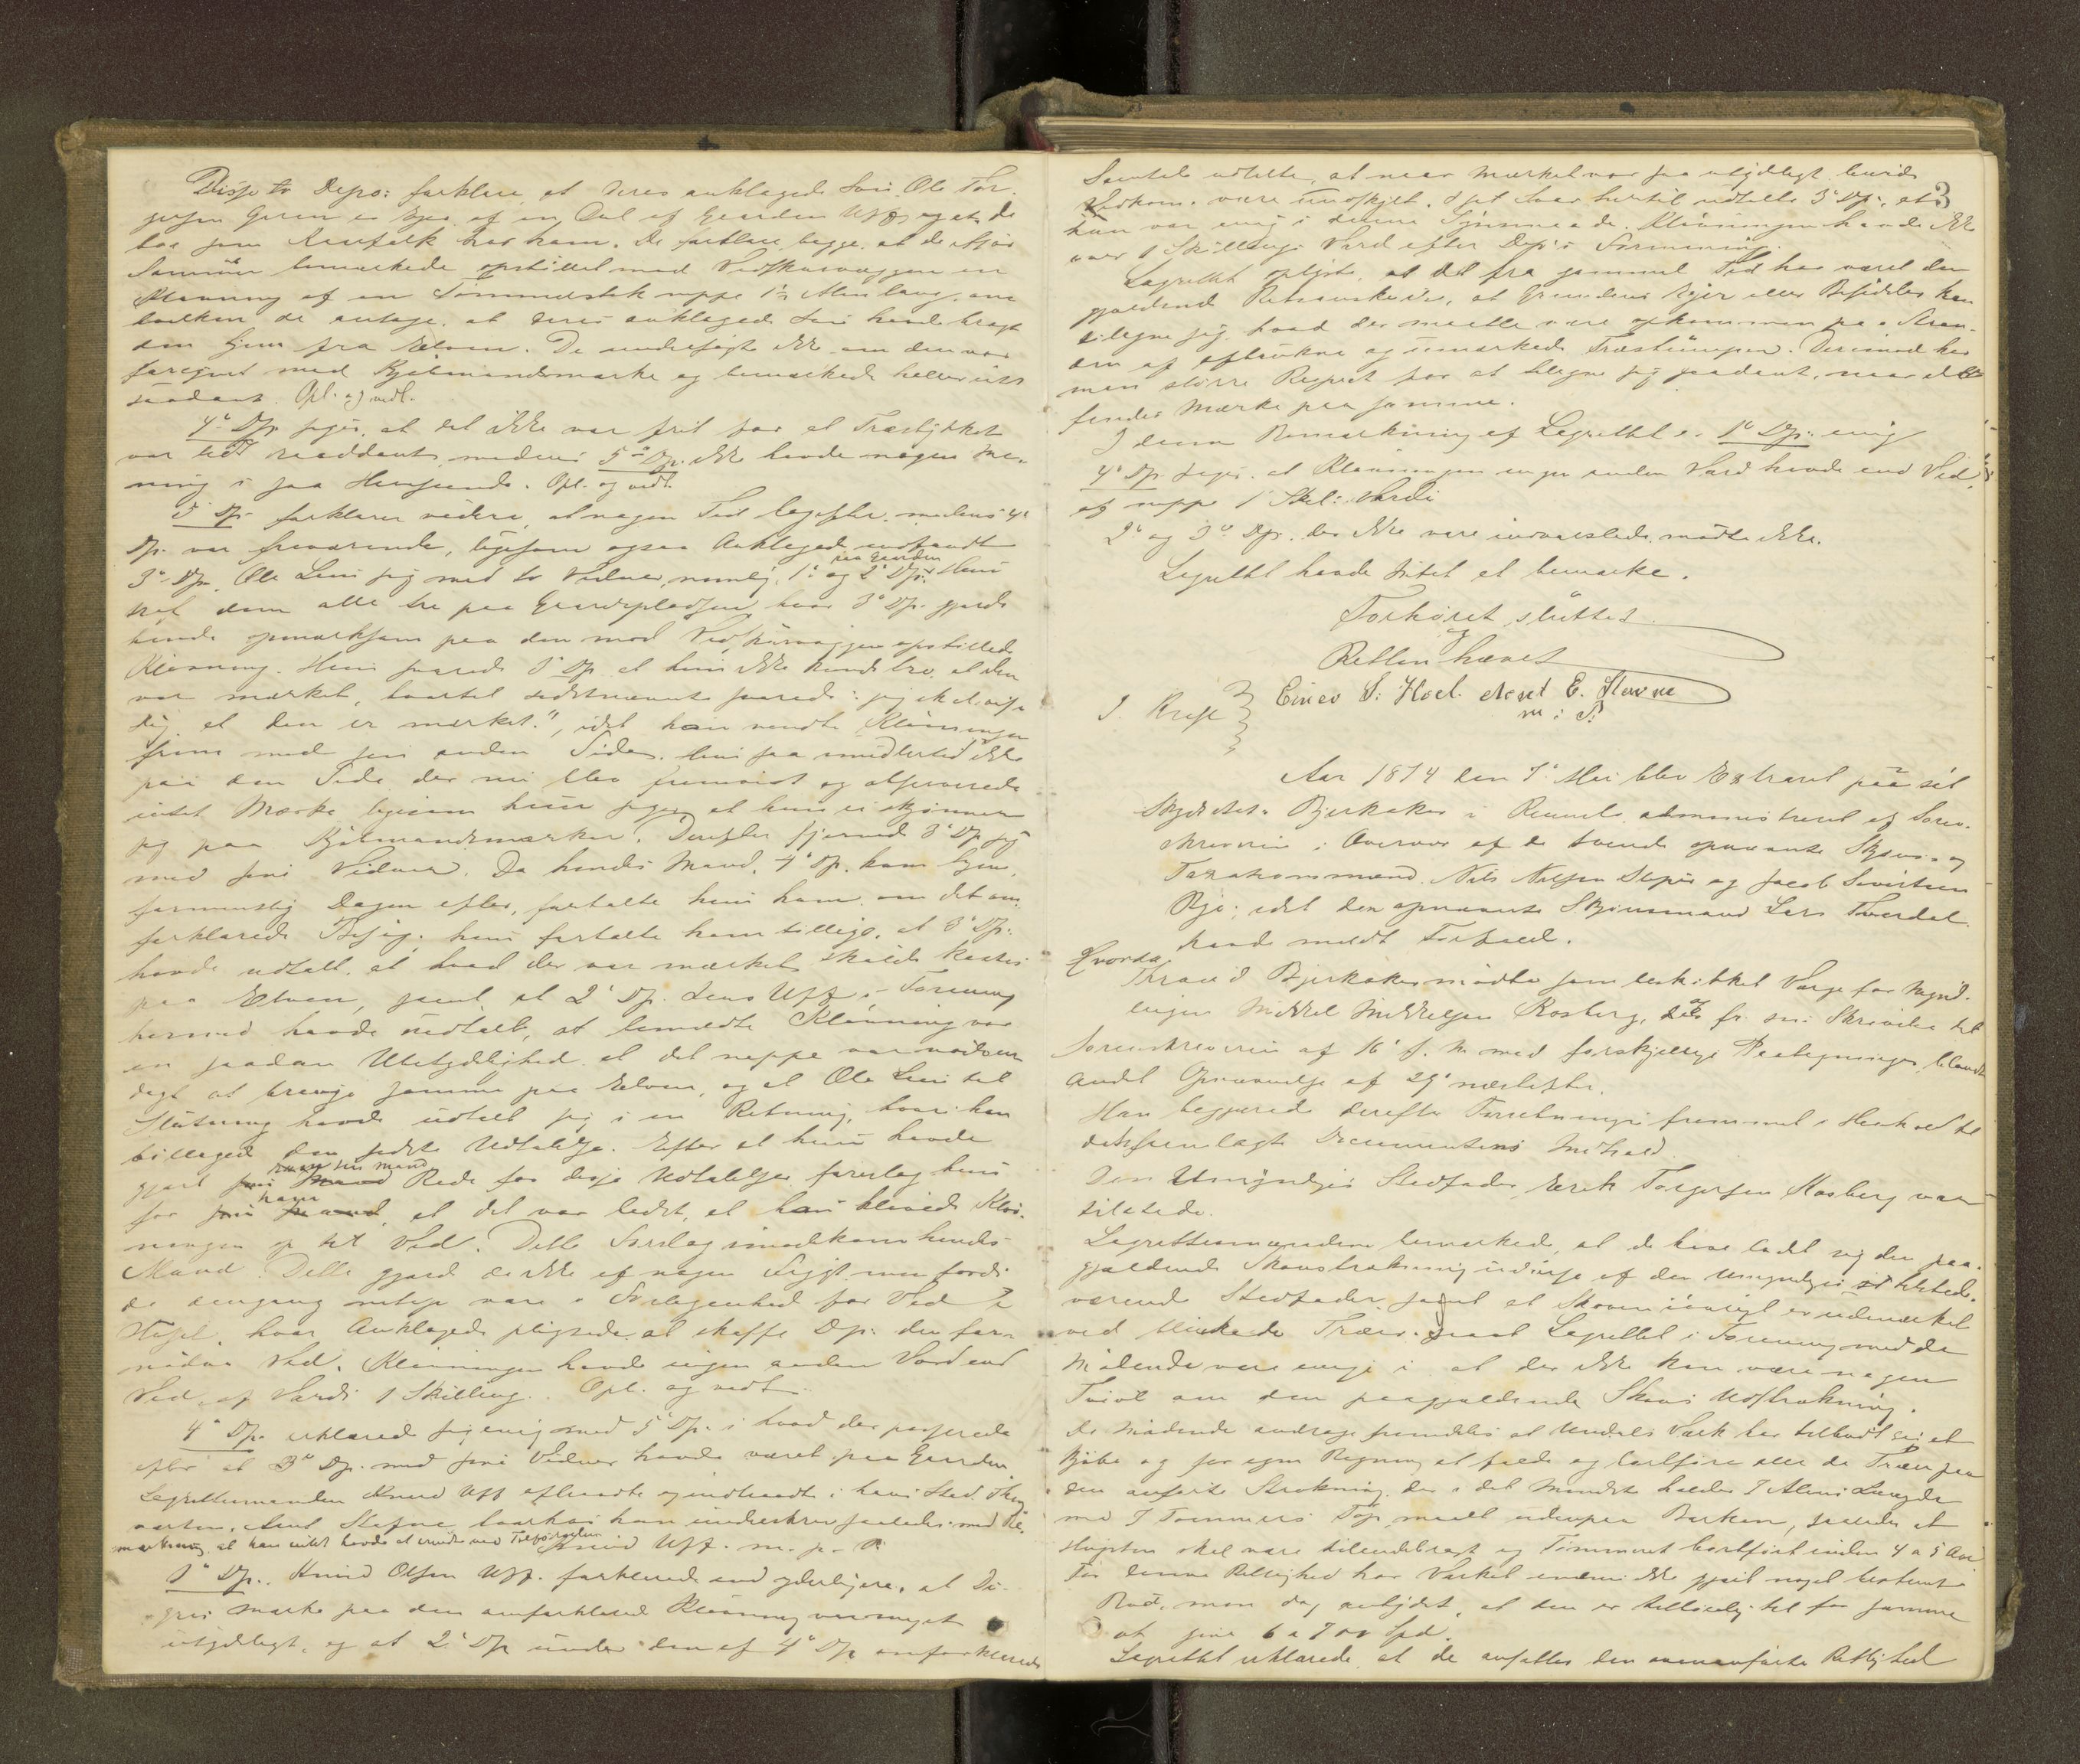 Disse to Depo: forklare, at deres anklagede Søn Ole Tor-
gersen Goren er Eier af en Del af Gaarden Uff, og at de
bor som Leiefolk hos ham. De forklare begge at de ifjor
Sommer bemærkede opstillet mod Vedskurvæggen en
Kløvning af en Tømmerstok neppe 1½ Alen lang, om
hvilken de antage, at deres anklagede Søn havde bragt
den hjem fra Elven. De undersøgte ikke om den var
forsynet med Kjøbmandsmærke og bemærkede heller intet
saadant. Opl. og vedt.
4de Dp. siger, at det ikke var frit for at Træstykket
var lidt raaddent, medens 5te Dp. ikke havde nogen Me-
ning i saa Henseende. Opl. og vedt.
5 Dp. forklarer videre, at nogen Tid bagefter, medens 4de
Dp. var fraværende, ligesom ogsaa Anklagede, indfandt
3de Dp. Ole Lien sig med to Vidner, nemlig 1ste og 2de Dp. paa Gaarden. Hun
traf dem alle tre paa Gaardspladsen, hvor 3de Dp. gjorde
hende opmærksom paa den mod Vedskurvæggen opstillede
Kløvning. Hun svarede 3 Dp. at hun ikke kunde tro, at den
var mærket, hvortil sidstnævnte svarede: "jeg skal vise
dig at den er mærket", idet han vendte Kløvningen
frem med sin anden Side. Hun saa imidlertid ikke
paa den Side der nu blev fremvist og observerede
intet Mærke ligesom hun siger, at hun ei skjønner
sig paa Kjøbmandsmærker. Derefter fjernede 3de Dp. sig
med sine Vidner. Da hendes Mand, 4de Dp. kom hjem,
formentlig Dagen efter, fortalte hun ham om det om-
forklarede Besøg; hun fortalte ham tillige, at 3 Dp.
havde udtalt, at hvad der var mærket skulde kastes
paa Elven, samt at 2de Dp. Jens Uff i Forening
hermed havde udtalt, at bemeldte Kløvning var
en saadan Ubetydelighed at det neppe var nødven-
digt at bringe samme paa Elven, og at Ole Lien til
Slutning havde udtalt sig i en Retning, hvori han
billigede den sidste Udtalelse. Efter at hun havde
gjort sin Mand Rede for disse Udtalelser foreslog hun
for ham, at det var bedst, at han kløvede Kløv-
ningen op til Ved. Dette Forslag imødekom hendes
Mand. Dette gjorde de ikke af nogen Frygt men fordi
de dengang netop vare i Forlegenhed for Ved i
Huset, hvor Anklagede pligtede at skaffe Dp. den for-
nødne Ved. Kløvningen havde ingen anden Værd end
Ved, af Værdi 1 Skilling. Opl. og vedt.
4de Dp. erklærede sig enig med 5 Dp. i hvad der passerede
efter at 3de Dp. med sine Vidner havde været paa Gaarden.
Lagrettemanden Knud Uff aftraadte og indtraadte i hans Sted
Arnt Stavne hvorhos han underskrev saaledes med Be-
mærkning, at han intet havde at erindre ved Tilførselen
Knud Uff. m. p. P.
1ste Dp. Knud Olsen Uff. forklarede end yderligere, at
mærke paa den omforklarede Kløvning var meget
utydeligt, og at 2de Dp. under den af 4de Dp. omforklarede
3
Samtale udtalte, at naar Mærket var saa utydeligt burde
Vedkom. være undskyldt. I sit Svar hertil udtalte 3de Dp. at
han var enig i denne Kløvningen havde ikke
over 1 Skillings Værd efter Dep's Formening.
Lagrettet oplyste, at det fra gammel Tid har været den
gjældende Retsanskuelse, at Grundens Eier eller Besidder kan
tilegne sig hvad der maatte være opkommen paa Stran-
den af afbrukne og umærkede Træstumper. Derimod har
man større Respect for at tilegne sig saadant, naar der
findes Mærke paa samme.
I denne Bemærkning af Lagrettet er 1ste Dp. enig
4de Dp. siger at Kløvningen ingen anden Værd havde end Ved,
af neppe 1 Skil: Værdi
2de og 3de Dp. der ikke vare indvarslede mødte ikke.
Lagrettet havde Intet at bemærke.
Forhøret sluttet
Retten hævet
J. Krefft Einer S: Hoel. Arnt E. Stavne
m: P:
Aar 1874 den 7de Mai blev Extraret paa sat
Skydsst. Bjerkaker i Rennebo administreret af Soren-
skriveren i Overvær af de tvende opnævnte Skjøns- og
Taxationsmænd Nils Nilsen Stper og Jacob Sivertsen
Rye, idet den opnævnte Skjønsmand Lars Tverdal
havde meldt Forfald.
Hvorda
Trond Bjerkaker mødte som beskikket Værge for Mynd-
lingen Mikkel Mikkelsen Rosberg, og fr. sin Skrivelse til
Sorenskriveren af 16de f. M. med forskjellige Paategninger, blandt
Andet Opnævnelse af 29de næstefter.
Han begjærede derefter Forretningen fremmet i Henhold til
det fremlagte Documentens Indhold.
Den Umyndiges Stedfader, Erik Torgersen Rosberg var
tilstede.
Lagrettemændene bemærkede, at de have ladet sig den paa-
gjældende Skovstrækning udvise af den Umyndiges tilstede-
værende Stedfader, samt at Skoven iøvrigt er udmærket
ved blinkede Træer, samt Lagrettet i Forening med de
Mødende vare enige i at der ikke kan være nogen
Tvivl om den paagjældende Skovs Udstrækning.
De Mødende androge fremdeles at Undals Værk har tilbudt sig at
kjøbe og for egen Regning at fælde og bortføre alle de Træer paa
den anførte Strækning, der i det Mindste holder 7 Alens Længde
med 7 Tommers Top, maalt udenpaa Barken, saaledes at
Hugsten skal være tilendebragt og Tømmeret bortført inden 4 a 5 Aar
For denne Rettighed har Værket endnu ikke gjort noget bestemt
Bud, men dog antydet, at den er tilbøielig til for samme
at give 6 a 700 Spd.
Lagrettet erklærede, at de ansatte den ovenanførte Rettighed